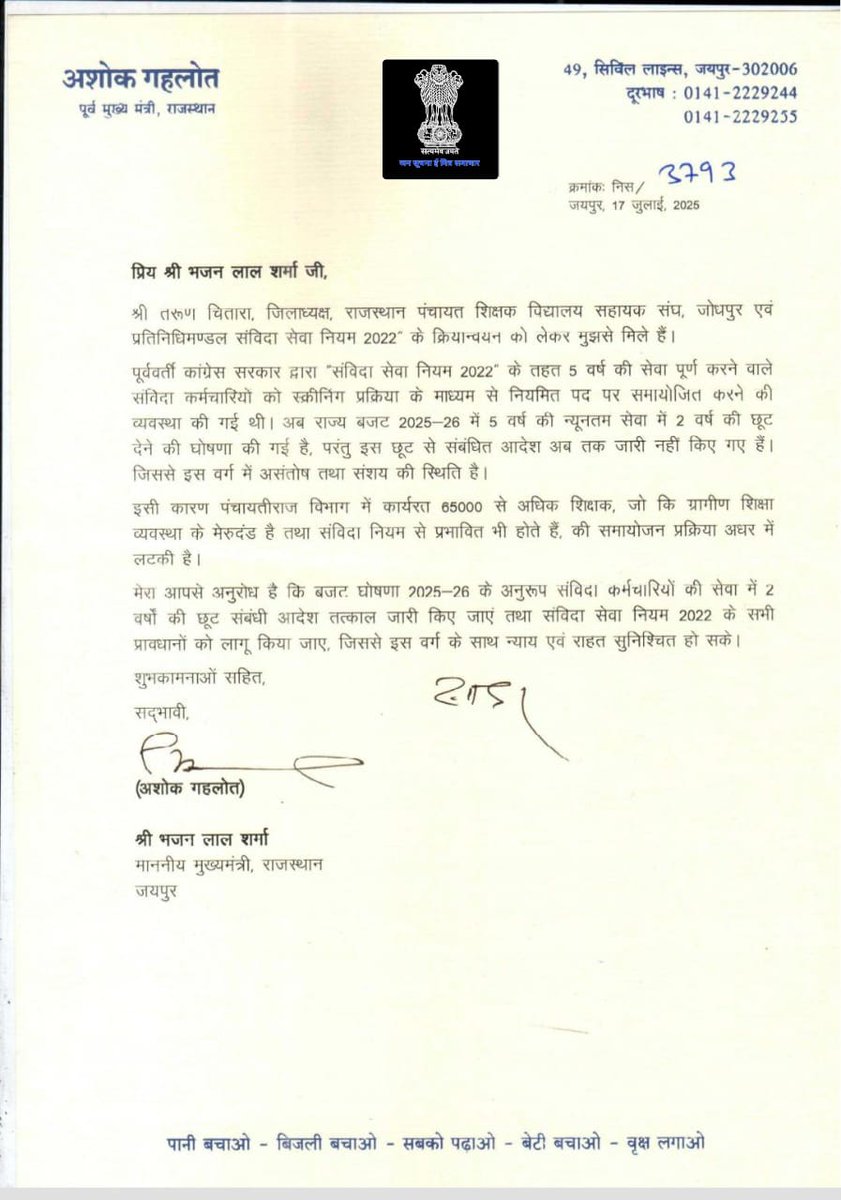 अशोक गहलोत
पूर्व मुख्य मंत्री, राजस्थान
सत्यमेव जयते
जन सूचना ई मित्र समाचार
49, सिविल लाइन्स, जयपुर-302006
दूरभाष : 0141-2229244
0141-2229255
क्रमांकः निस/ 3793
जयपुर, 17 जुलाई, 2025
प्रिय श्री भजन लाल शर्मा जी,
श्री तरूण चितारा, जिलाध्यक्ष, राजस्थान पंचायत शिक्षक विद्यालय सहायक संघ, जोधपुर एवं
प्रतिनिधिमण्डल संविदा सेवा नियम 2022" के क्रियान्वयन को लेकर मुझसे मिले हैं।
पूर्ववर्ती कांग्रेस सरकार द्वारा "संविदा सेवा नियम 2022" के तहत 5 वर्ष की सेवा पूर्ण करने वाले
संविदा कर्मचारियों को स्क्रीनिंग प्रक्रिया के माध्यम से नियमित पद पर समायोजित करने की
व्यवस्था की गई थी। अब राज्य बजट 2025-26 में 5 वर्ष की न्यूनतम सेवा में 2 वर्ष की छूट
देने की घोषणा की गई है, परंतु इस छूट से संबंधित आदेश अब तक जारी नहीं किए गए हैं।
जिससे इस वर्ग में असंतोष तथा संशय की स्थिति है।
इसी कारण पंचायतीराज विभाग में कार्यरत 65000 से अधिक शिक्षक, जो कि ग्रागीण शिक्षा
व्यवस्था के मेरुदंड है तथा संविदा नियम से प्रभावित भी होते हैं, की समायोजन प्रक्रिया अधर में
लटकी है।
मेरा आपसे अनुरोध है कि बजट घोषणा 2025-26 के अनुरूप संविदा कर्मचारियों की सेवा में 2
वर्षों की छूट संबंधी आदेश तत्काल जारी किए जाएं तथा संविदा सेवा नियम 2022 के सभी
प्रावधानों को लागू किया जाए, जिससे इस वर्ग के साथ न्याय एवं राहत सुनिश्चित हो सके।
शुभकामनाओं सहित,
सद्भावी,
(अशोक गहलोत)
श्री भजन लाल शर्मा
माननीय मुख्यमंत्री, राजस्थान
जयपुर
पानी बचाओ - बिजली बचाओ - सबको पढ़ाओ - बेटी बचाओ - वृक्ष लगाओ